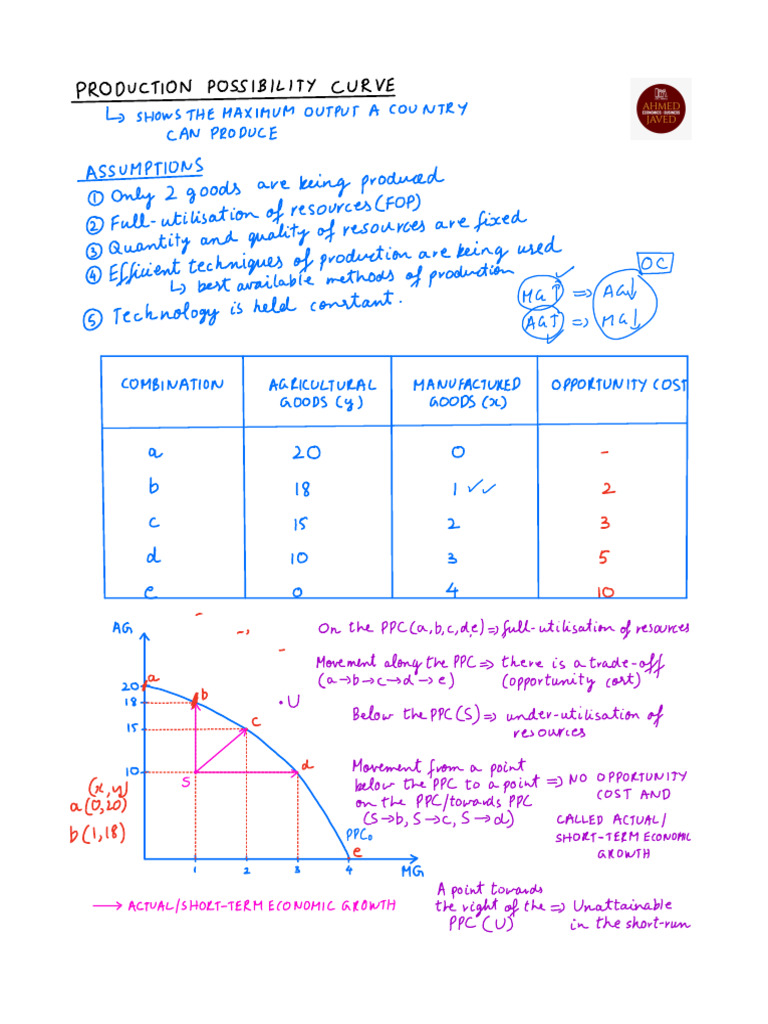 PRODUCTION POSSIBILITY CURVE
↳ SHOWS THE MAXIMUM OUTPUT A COUNTRY
CAN PRODUCE
AHMED
ECONOMICS · BUSINESS
JAVED
ASSUMPTIONS
① Only 2 goods are being produced
② Full-utilisation of resources (FOP)
③ Quantity and quality of resources are fixed
④ Efficient techniques of production are being used
↳ best available methods of production
⑤ Technology is held constant.
OC
MG↑ ⇒ AG↓
AG↑ ⇒ MG↓
COMBINATION AGRICULTURAL GOODS (y) MANUFACTURED GOODS (x) OPPORTUNITY COST
a 20 0 -
b 18 1 ✓✓ 2
c 15 2 3
d 10 3 5
e 0 4 10
AG
20
18
15
10
a
b
c
d
e
S
•U
PPC₀
1 2 3 4 MG
(x,y)
a(0,20)
b(1,18)
→ ACTUAL/SHORT-TERM ECONOMIC GROWTH
On the PPC (a,b,c,d,e) ⇒ full-utilisation of resources
Movement along the PPC ⇒ there is a trade-off
(a→b→c→d→e) (opportunity cost)
Below the PPC (S) ⇒ under-utilisation of
resources
Movement from a point
below the PPC to a point ⇒ NO OPPORTUNITY
on the PPC/towards PPC COST AND
(S→b, S→c, S→d) CALLED ACTUAL/
SHORT-TERM ECONOMIC
GROWTH
A point towards
the right of the ⇒ Unattainable
PPC (U) in the short-run